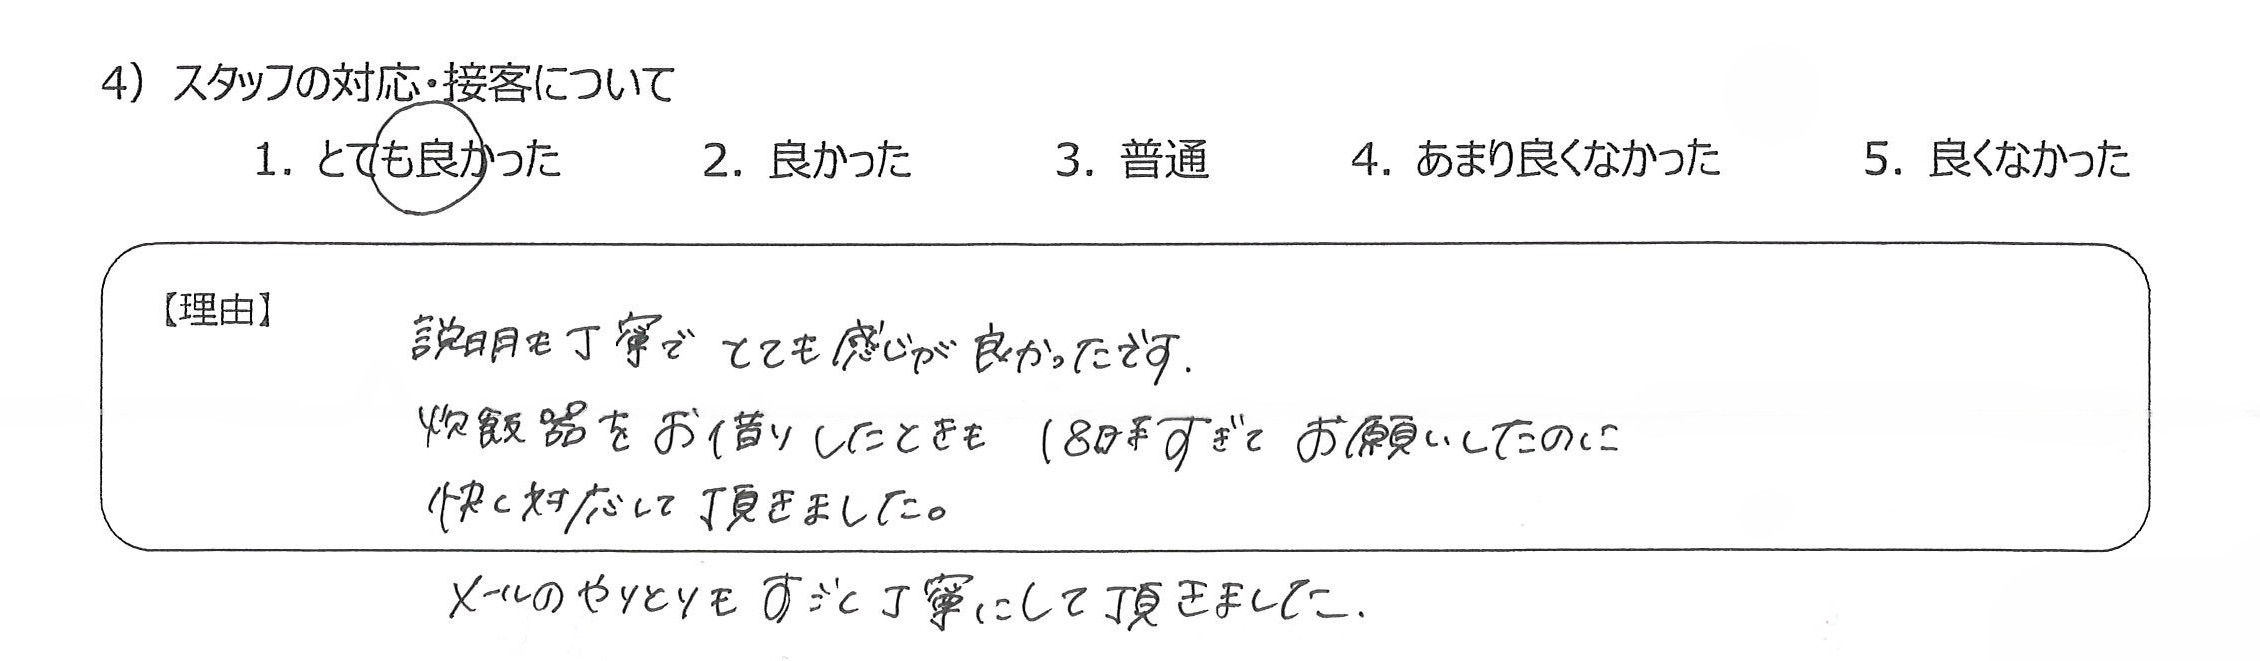 4) スタッフの対応・接客について
1. とても良かった 2. 良かった 3. 普通 4. あまり良くなかった 5. 良くなかった
【理由】
説明も丁寧で とても感じが良かったです.
炊飯器をお借りしたときも 18時すぎて お願いしたのに
快く対応して頂きました。
メールのやりとりも すごく丁寧にして頂きました.